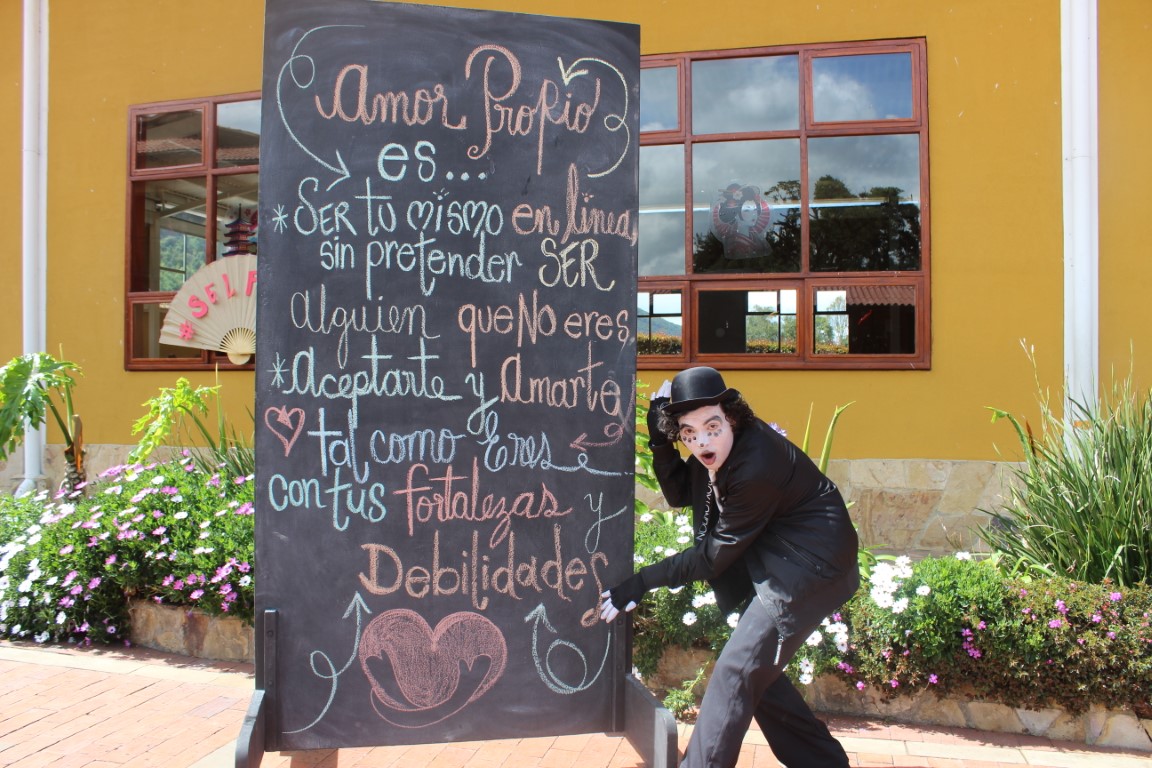 Amor Propio
es...
*SER tú mismo en línea,
sin pretender SER
alguien que No eres
*Aceptarte y Amarte
tal como Eres
con tus fortalezas y
Debilidades
#SELF